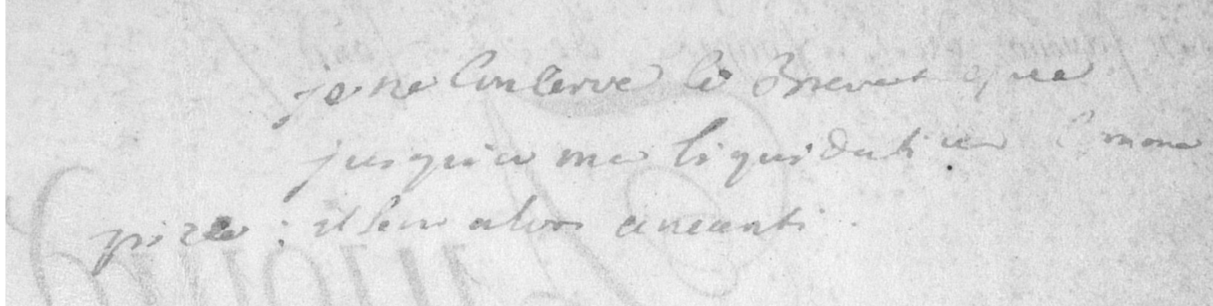 je ne Conserve le Brevet que
jusqu'a ma liquidation
; il sera alors aneanti.